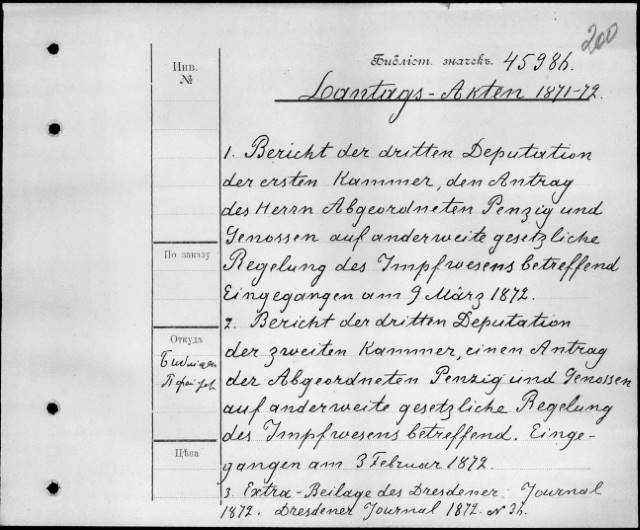 200
Инв.
№
Библіот. значекъ. 4598h.
Lantags-Akten 1871-72.
1. Bericht der dritten Deputation
der ersten Kammer, den Antrag
des Herrn Abgeordneten Penzig und
Genossen auf anderweite gesetzliche
Regelung des Impfwesens betreffend
Eingegangen am 9 März 1872.
2. Bericht der dritten Deputation
der zweiten Kammer, einen Antrag
der Abgeordneten Penzig und Genossen
auf anderweite gesetzliche Regelung
des Impfwesens betreffend. Einge-
gangen am 3 Februar 1872.
3. Extra-Beilage des Dresdener Journal
1872. Dresdener Journal 1872. N 2h.
По заказу
Откуда
Цѣна